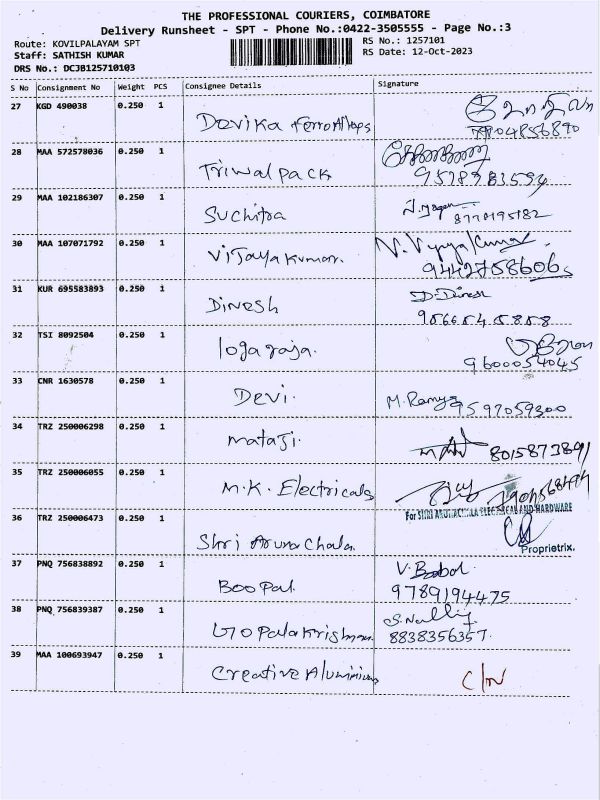 THE PROFESSIONAL COURIERS, COIMBATORE
Delivery Runsheet - SPT - Phone No.:0422-3505555 - Page No.:3
Route: KOVILPALAYAM SPT
Staff: SATHISH KUMAR
DRS No.: DCJB125710103
RS No.: 1257101
RS Date: 12-Oct-2023
S No Consignment No Weight PCS Consignee Details Signature
27 KGD 490038 0.250 1 Devika FerroAlloys
28 MAA 572578036 0.250 1 Triwalpack
29 MAA 102186307 0.250 1 Suchitra
30 MAA 107071792 0.250 1 Vijayakumar. V. Vijayakumar
31 KUR 695583893 0.250 1 Dinesh D. Dinesh
32 TSI 8092504 0.250 1 logaraja. 9600054045
33 CNR 1630578 0.250 1 Devi. M. Ramya 9597059300
34 TRZ 250006298 0.250 1 mataji.
35 TRZ 250006055 0.250 1 M.K. Electricals
For SHRI ARUNACHALA ELECTRICAL AND HARDWARE
36 TRZ 250006473 0.250 1 Shri Arunachala
Proprietrix.
37 PNQ 756838892 0.250 1 Boopal V. 9789194475
38 PNQ 756839387 0.250 1 Gopalakrishnan 8838356357
39 MAA 100693947 0.250 1 Creative Aluminium